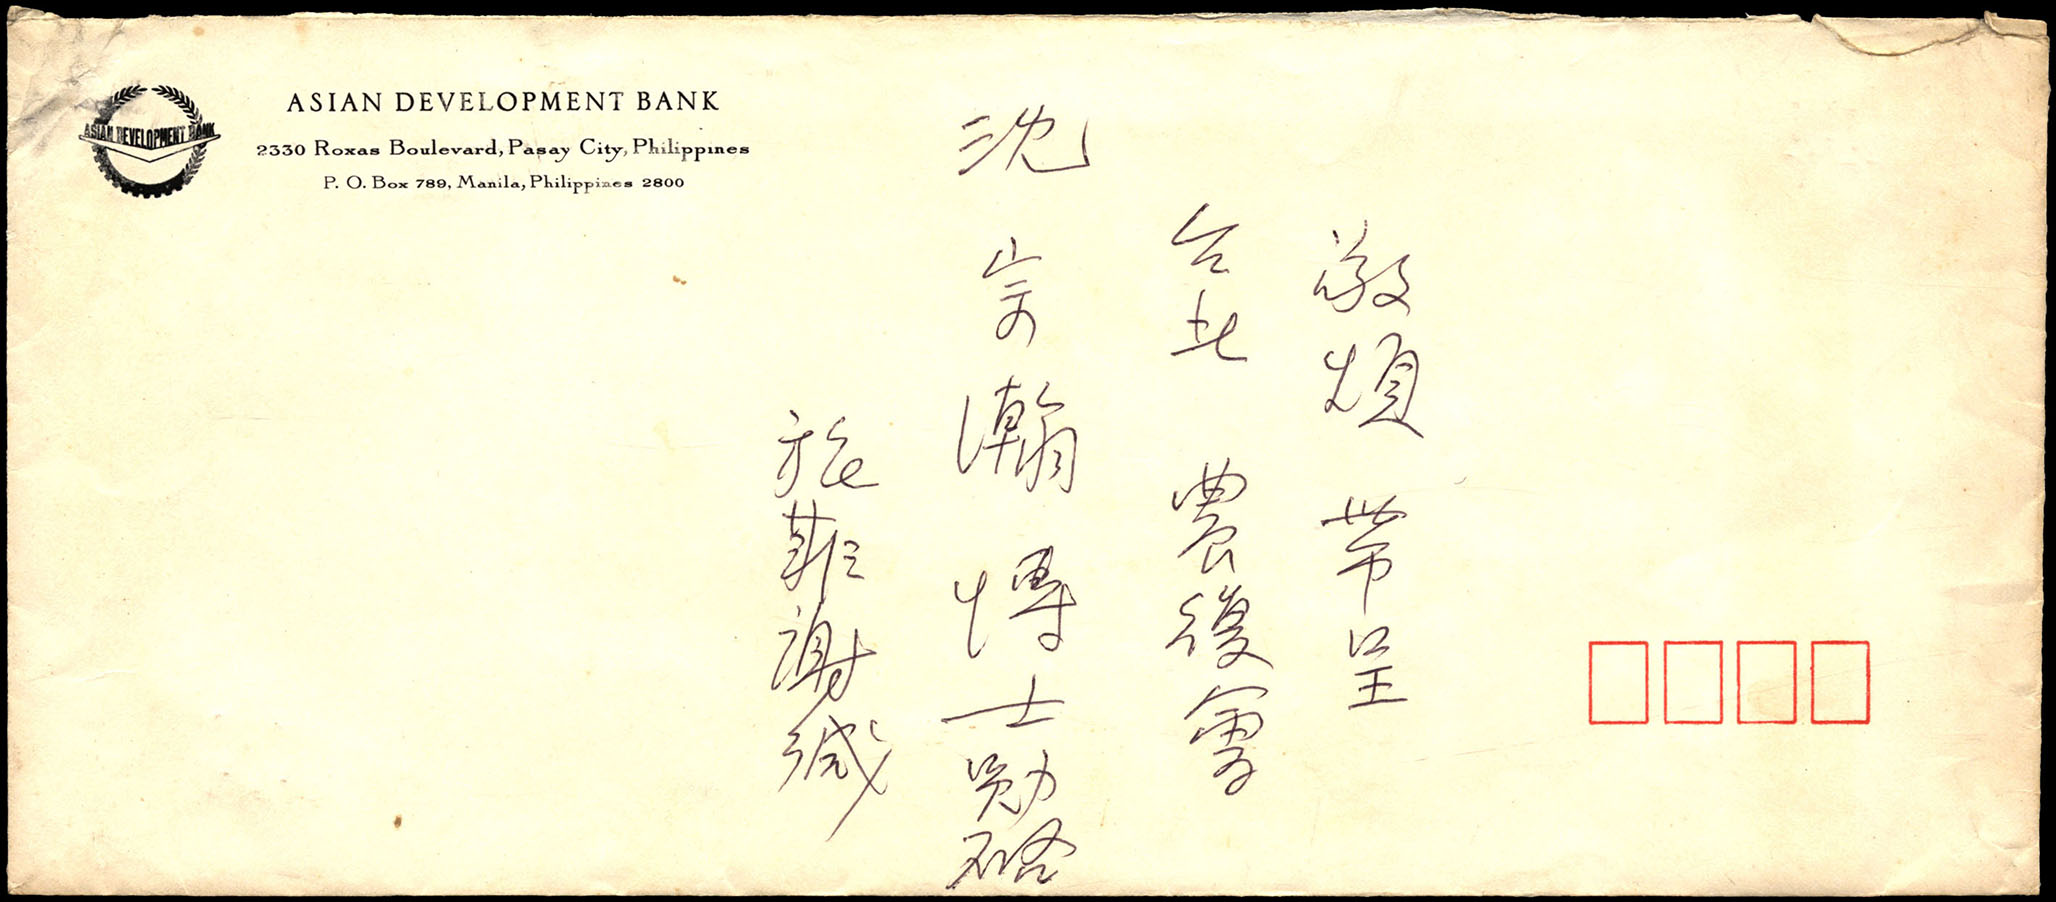 ASIAN DEVELOPMENT BANK
ASIAN DEVELOPMENT BANK
2330 Roxas Boulevard, Pasay City, Philippines
P. O. Box 789, Manila, Philippines 2800
敬煩 帶呈
台北 農復會
沈宗瀚博士勛啓
旅菲謝緘